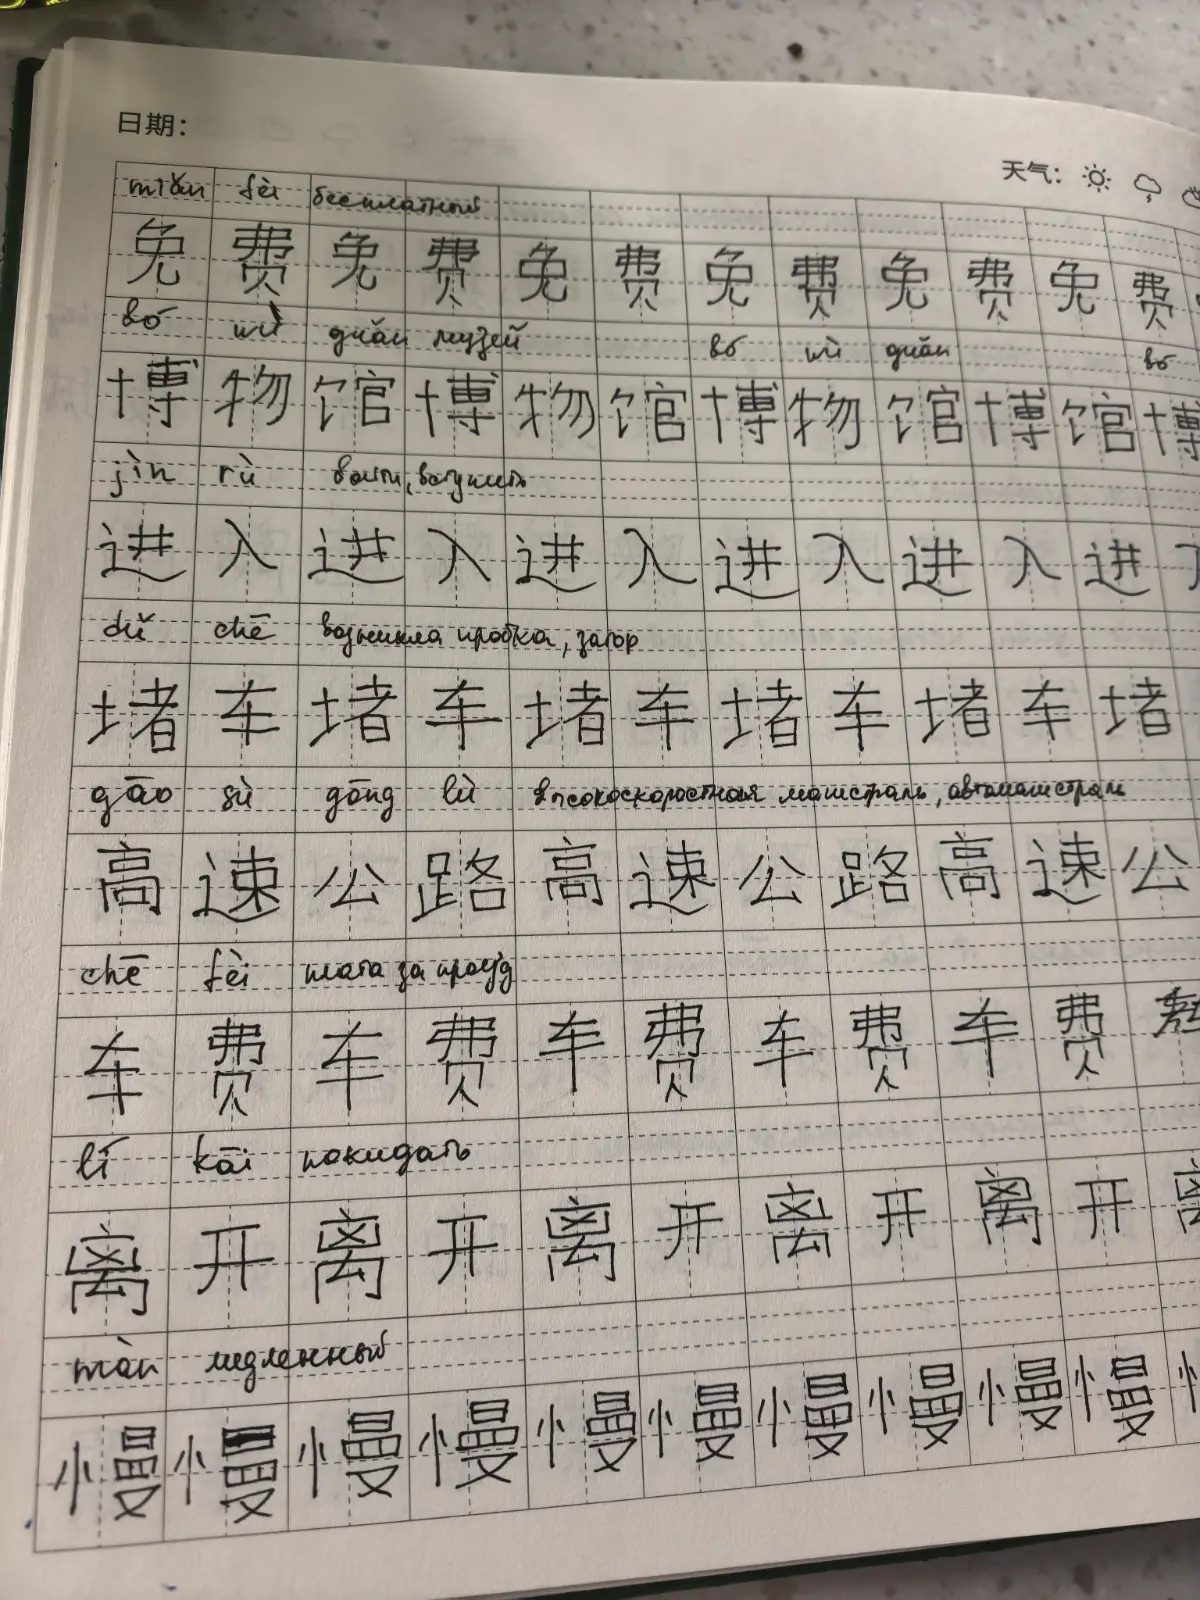 日期：
天气：
miǎn fèi бесплатный
免 费 免 费 免 费 免 费 免 费 免 费
bó wù guǎn музей bó wù guǎn bó
博 物 馆 博 物 馆 博 物 馆 博 馆 博
jìn rù войти, вступить
进 入 进 入 进 入 进 入 进 入 进
dǔ chē возникла пробка, затор
堵 车 堵 车 堵 车 堵 车 堵 车 堵
gāo sù gōng lù высокоскоростная магистраль, автомагистраль
高 速 公 路 高 速 公 路 高 速 公
chē fèi плата за проезд
车 费 车 费 车 费 车 费 车 费
lí kāi покидать
离 开 离 开 离 开 离 开 离 开 离
màn медленный
慢 慢 慢 慢 慢 慢 慢 慢 慢 慢